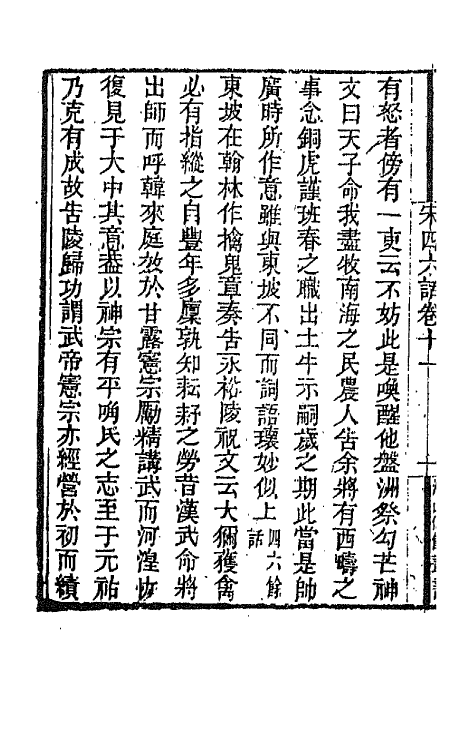 宋四六話卷十一
有怒者傍有一吏云不妨此是喚醒他盤洲祭勾芒神
文曰天子命我盡牧南海之民農人告余將有西疇之
事念銅虎謹班春之職出土牛示嗣歲之期此當是帥
廣時所作意雖與東坡不同而詞語瓌妙似上四六餘話
東坡在翰林作擒鬼章奏告永裕陵祝文云大獮獲禽
必有指縱之自豐年多廩孰知耘耔之勞昔漢武命將
出師而呼韓來庭效於甘露憲宗勵精講武而河湟恢
復見于大中其意蓋以神宗有平唃氏之志至于元祐
乃克有成故告陵歸功謂武帝憲宗亦經營於初而績